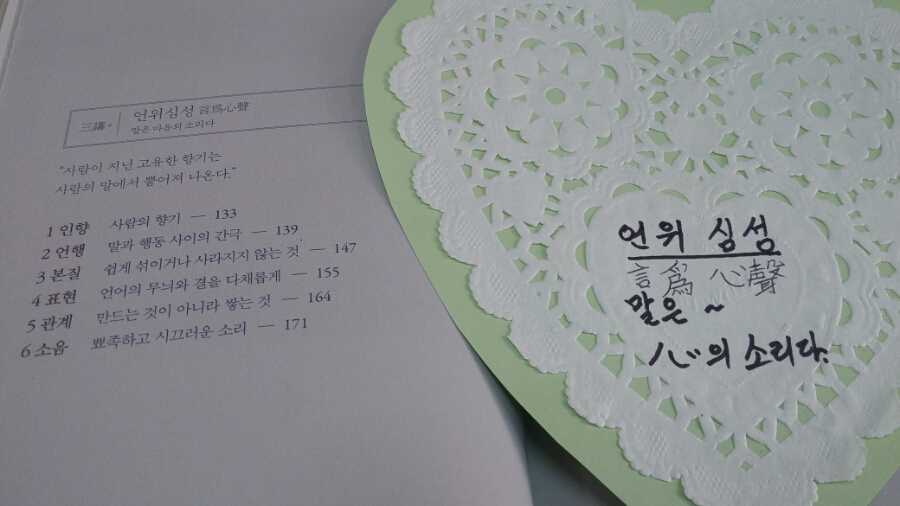 三講。
언위심성 言爲心聲
말은 마음의 소리다
"사람이 지닌 고유한 향기는
사람의 말에서 뿜어져 나온다."
1 인향 사람의 향기 — 133
2 언행 말과 행동 사이의 간극 — 139
3 본질 쉽게 섞이거나 사라지지 않는 것 — 147
4 표현 언어의 무늬와 결을 다채롭게 — 155
5 관계 만드는 것이 아니라 쌓는 것 — 164
6 소음 뾰족하고 시끄러운 소리 — 171
언위 심성
言爲 心聲
말은 ~
心의 소리다.